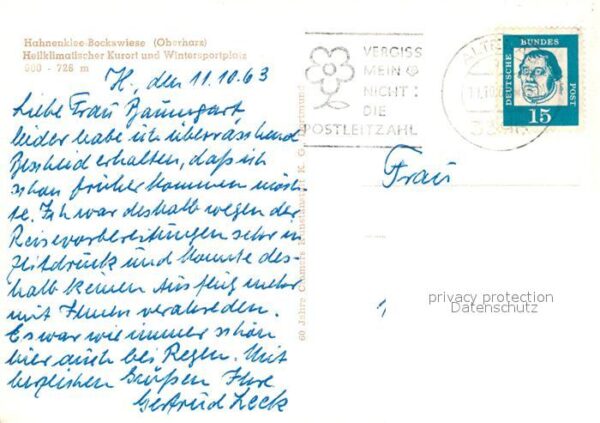 Hahnenklee-Bockswiese (Oberharz)
Heilklimatischer Kurort und Wintersportplatz
600 - 726 m
H., den 11.10.63
Liebe Frau Baumgart,
leider habe ich überraschend
Bescheid erhalten, daß ich
schon früher kommen möch-
te. Ich war deshalb wegen der
Reisevorbereitungen sehr in
Zeitdruck und konnte des-
halb keinen Ausflug mehr
mit Ihnen verabreden.
Es war wie immer schön
hier auch bei Regen. Mit
herzlichen Grüßen Ihre
Gertrud Leck
60 Jahre Cramers Kunstanstalt K. G., Dortmund
VERGISS
MEIN
NICHT:
DIE
POSTLEITZAHL
DEUTSCHE BUNDES POST
15
Frau
privacy protection
Datenschutz